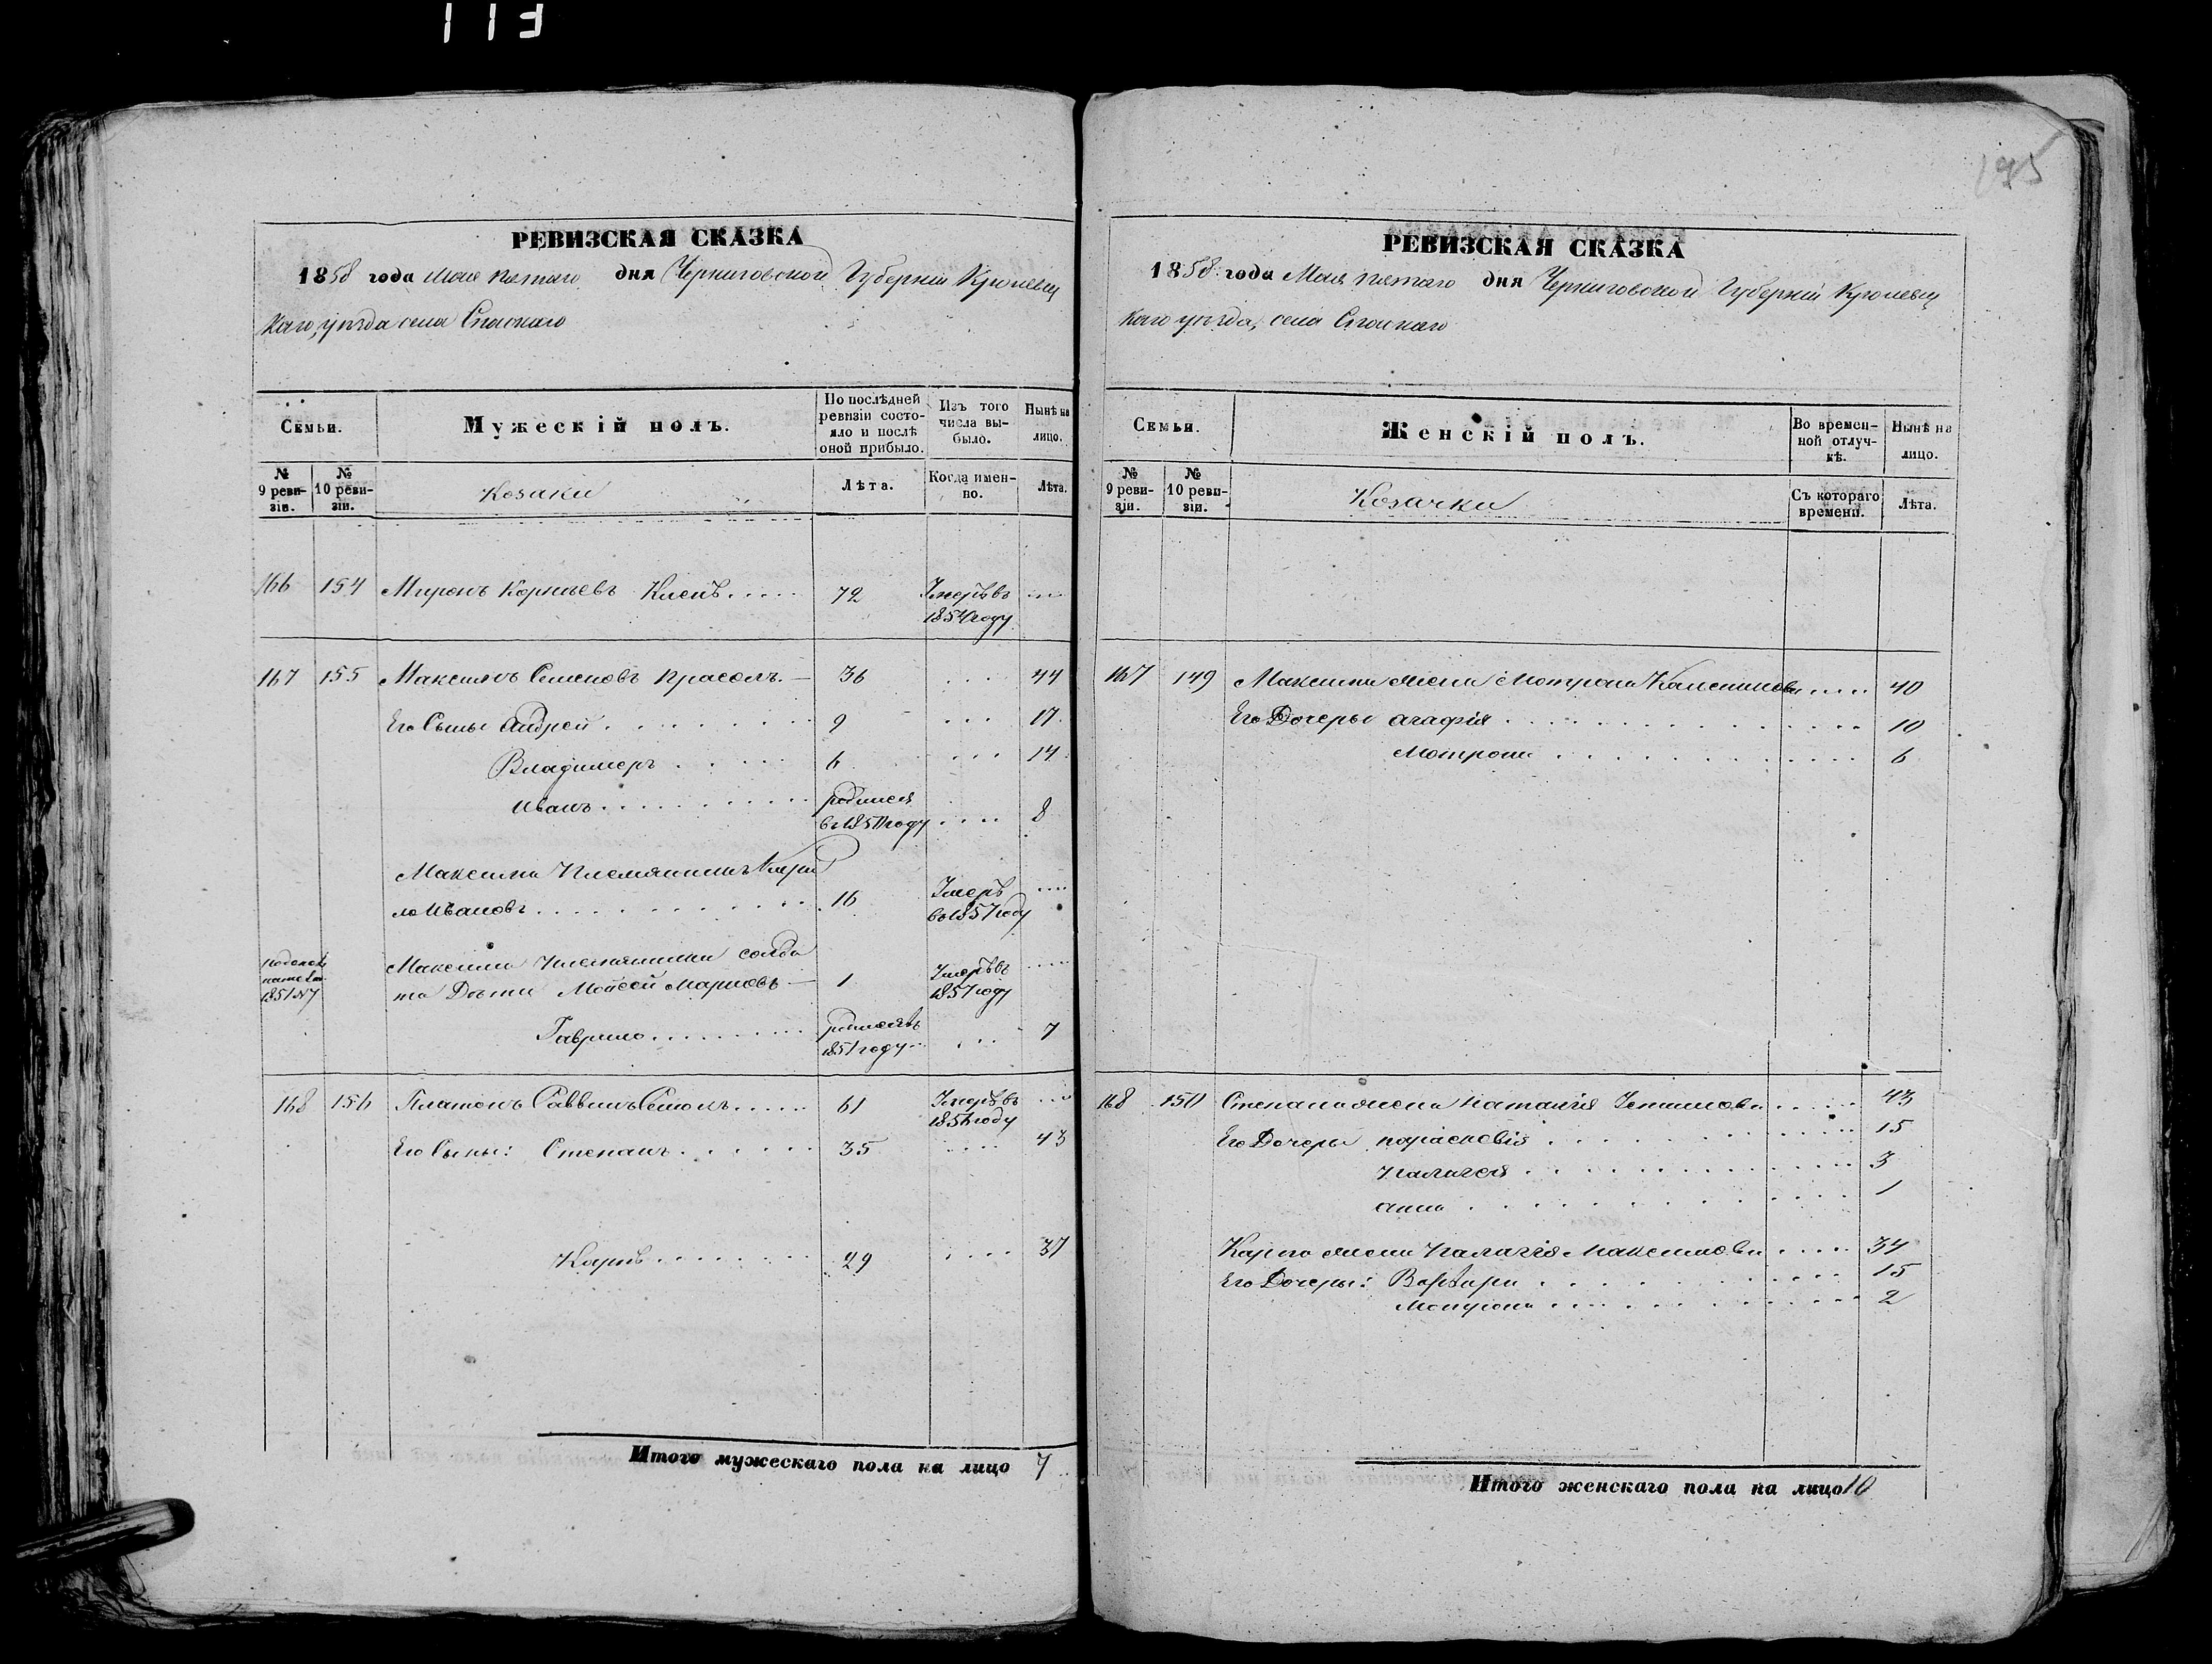 113
195
РЕВИЗСКАЯ СКАЗКА
1858 года Мая пятаго дня Черниговской Губерніи Кролевец
каго уѣзда села Спаскаго
Семьи.
Мужескій полъ.
По послѣдней ревизіи состояло и послѣ оной прибыло.
Изъ того числа выбыло.
Нынѣ на лицо.
№ 9 ревизіи.
№ 10 ревизіи.
Козаки
Лѣта.
Когда именно.
Лѣта.
166 154 Миронъ Корнѣевъ 72 Умеръ въ
1854 году
167 155 Максимъ Семеновъ Красолъ 36 44
Его Сыны Андрей 9 17
Владимеръ 6 14
Иванъ родился 8
Максима Племянникъ Кири
ло Ивановъ 16 Умеръ
в 1857 году
Максима племянника солда
та Дѣти Мойсей Марковъ 1 Умеръ въ
1857 году
Гаврило родился въ 7
1851 году
168 156 Платонъ Саввинъ 61 Умеръ въ
1856 году
Его Сыны: Степанъ 35 43
Карпъ 29 37
Итого мужескаго пола на лицо 7
РЕВИЗСКАЯ СКАЗКА
1858 года Мая пятаго дня Черниговской Губерніи Кролевец
каго уѣзда, села Спаскаго
Семьи.
Женскій полъ.
Во временной отлучкѣ.
Нынѣ на лицо.
№ 9 ревизіи.
№ 10 ревизіи.
Козачки
Съ котораго времени.
Лѣта.
167 149 Максима жена Мотрона 40
Его Дочеры Агафія 10
Мотрона 6
168 150 Степана жена Наталія 43
Его Дочеры Парасковія 15
Палагея 3
Анна 1
Карпа жена Палагія Максимова 34
Его Дочеры: Варвара 15
Мотрона 2
Итого женскаго пола на лицо 10